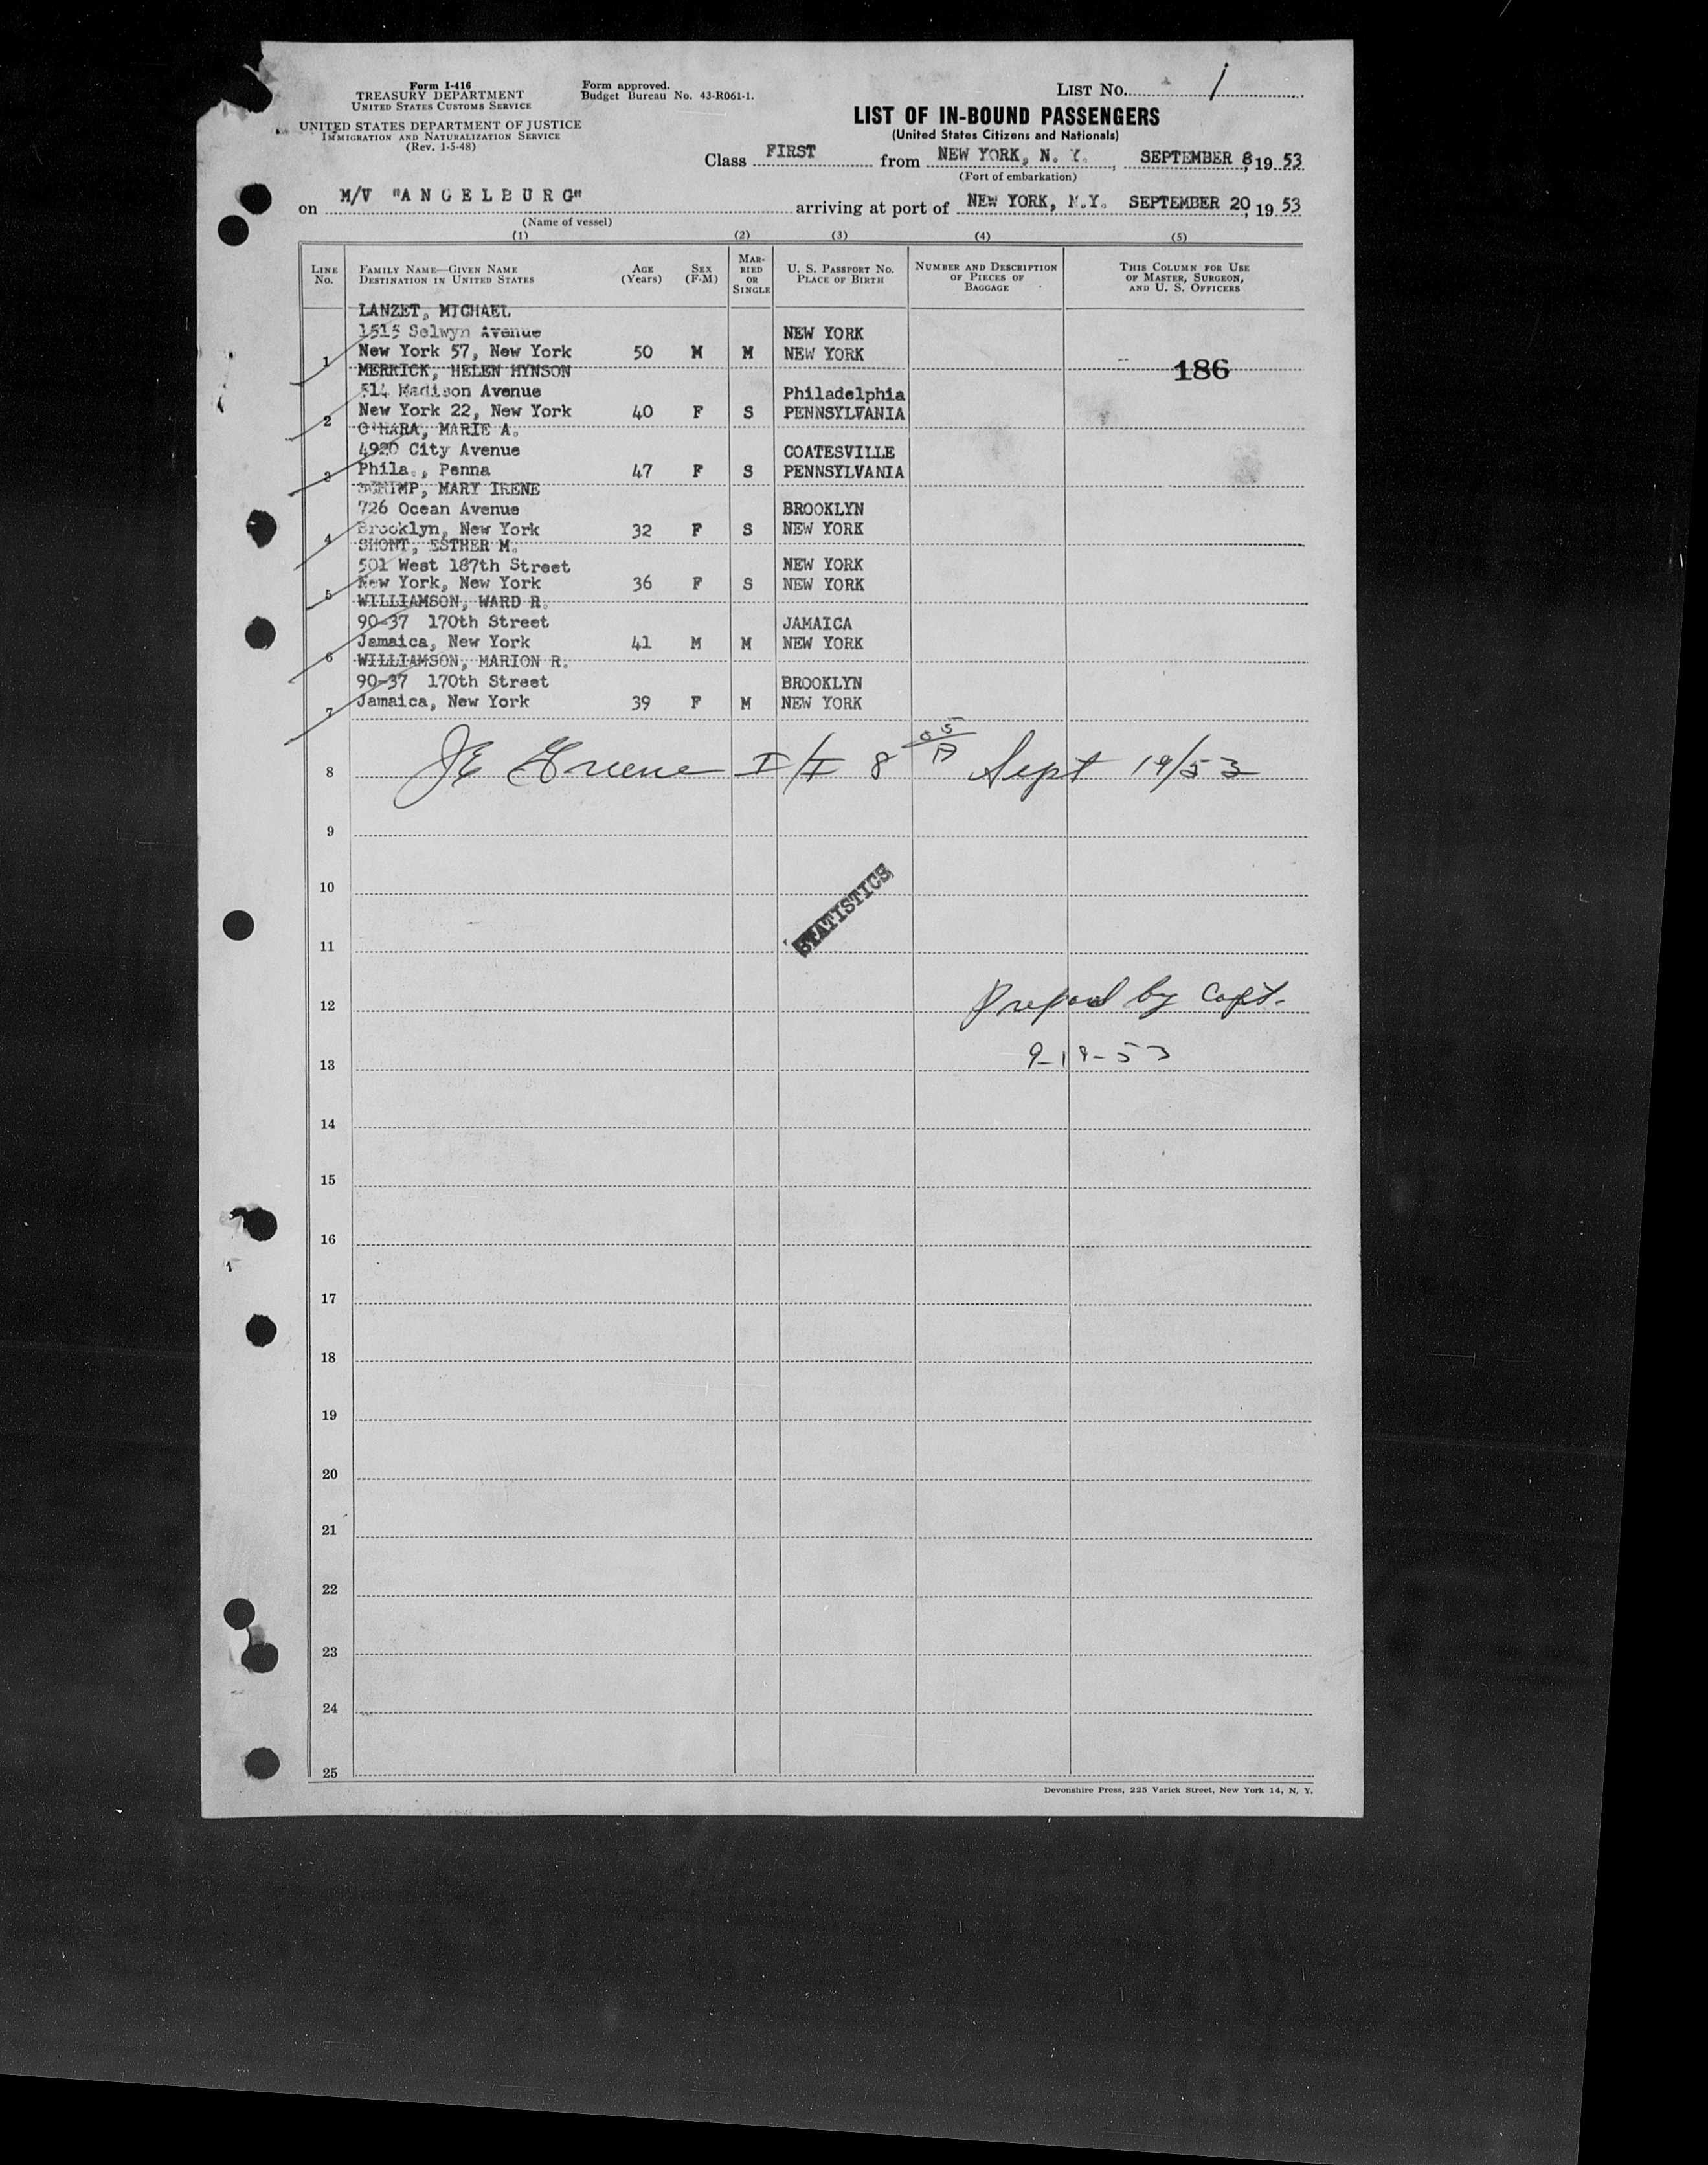 Form I-416
TREASURY DEPARTMENT
UNITED STATES CUSTOMS SERVICE
UNITED STATES DEPARTMENT OF JUSTICE
IMMIGRATION AND NATURALIZATION SERVICE
(Rev. 1-5-48)
Form approved.
Budget Bureau No. 43-R061-1.
LIST No. 1
LIST OF IN-BOUND PASSENGERS
(United States Citizens and Nationals)
Class FIRST from NEW YORK, N. Y., SEPTEMBER 8, 19 53
(Port of embarkation)
on M/V "ANGELBURG" arriving at port of NEW YORK, N.Y. SEPTEMBER 20, 19 53
(Name of vessel)
(1) (2) (3) (4) (5)
LINE No. FAMILY NAME—GIVEN NAME DESTINATION IN UNITED STATES AGE (Years) SEX (F-M) MARRIED OR SINGLE U. S. PASSPORT NO. PLACE OF BIRTH NUMBER AND DESCRIPTION OF PIECES OF BAGGAGE THIS COLUMN FOR USE OF MASTER, SURGEON, AND U. S. OFFICERS
LANZET, MICHAEL
1515 Selwyn Avenue NEW YORK
1 New York 57, New York 50 M M NEW YORK
186
MERRICK, HELEN HYNSON
514 Madison Avenue Philadelphia
2 New York 22, New York 40 F S PENNSYLVANIA
O'HARA, MARIE A.
4920 City Avenue COATESVILLE
3 Phila., Penna 47 F S PENNSYLVANIA
MARY IRENE
726 Ocean Avenue BROOKLYN
4 Brooklyn, New York 32 F S NEW YORK
SHONT, ESTHER M.
501 West 187th Street NEW YORK
5 New York, New York 36 F S NEW YORK
WILLIAMSON, WARD R.
90-37 170th Street JAMAICA
6 Jamaica, New York 41 M M NEW YORK
WILLIAMSON, MARION R.
90-37 170th Street BROOKLYN
7 Jamaica, New York 39 F M NEW YORK
8 JE Greene I/I 8 05/A Sept 19/53
9
10
STATISTICS
11
12 by Capt.
9-19-53
13
14
15
16
17
18
19
20
21
22
23
24
25
Devonshire Press, 225 Varick Street, New York 14, N. Y.